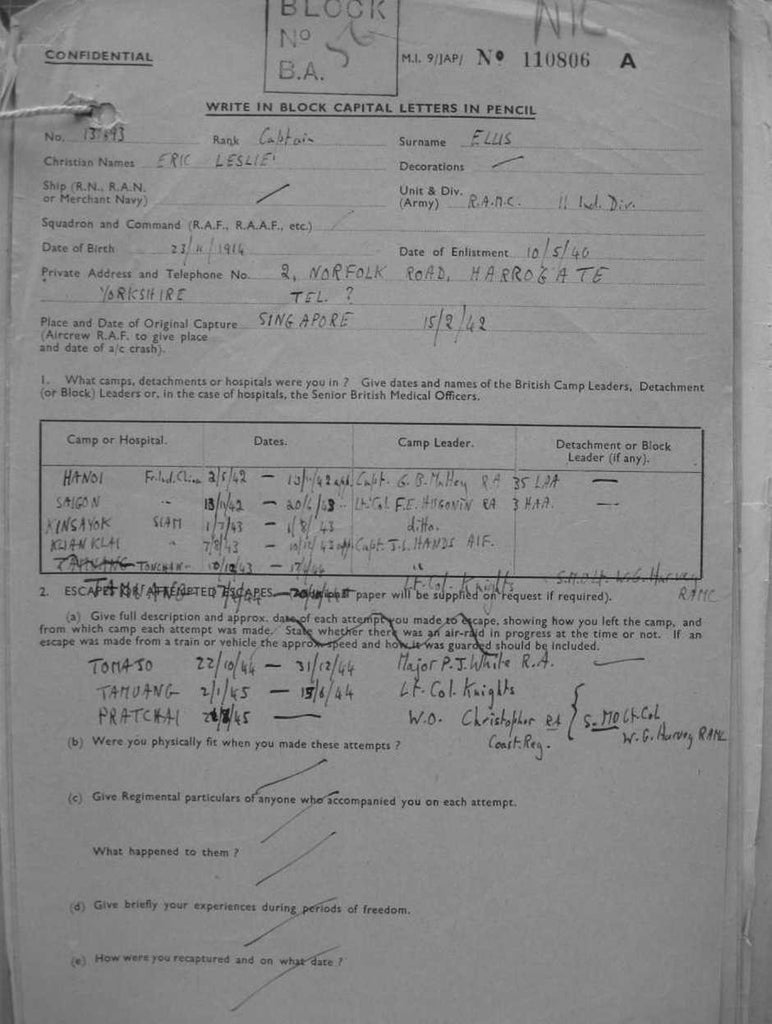 BLOCK
No 56
B.A.
NIL
CONFIDENTIAL
M.I. 9/JAP/ No 110806 A
WRITE IN BLOCK CAPITAL LETTERS IN PENCIL
No. Rank Captain Surname ELLIS
Christian Names ERIC LESLIE Decorations —
Ship (R.N., R.A.N. or Merchant Navy) Unit & Div. (Army) R.A.M.C. 11 Ind. Div.
Squadron and Command (R.A.F., R.A.A.F., etc.)
Date of Birth 1914 Date of Enlistment 10/5/40
Private Address and Telephone No. 2, NORFOLK ROAD, HARROGATE
YORKSHIRE TEL. ?
Place and Date of Original Capture SINGAPORE 15/2/42
(Aircrew R.A.F. to give place
and date of a/c crash).
1. What camps, detachments or hospitals were you in ? Give dates and names of the British Camp Leaders, Detachment
(or Block) Leaders or, in the case of hospitals, the Senior British Medical Officers.
Camp or Hospital. Dates. Camp Leader. Detachment or Block Leader (if any).
HANOI Fr. Ind. China 2/5/42 — Capt. G. B. RA 35 LAA —
SAIGON " — Lt. Col F.E. HUGONIN RA 3 HAA. —
KINSAYOK SIAM 1/7/43 — 1/8/43 ditto.
" 7/8/43 — Capt. J.S. HANDS AIF.
TAMUANG TONCHAN — "
TAMUANG — Lt. Col. Knights S.M.O Lt. W.G. Harvey
RAMC
2. ESCAPES OR ATTEMPTED ESCAPES paper will be supplied on request if required).
(a) Give full description and approx. date of each attempt you made to escape, showing how you left the camp, and
from which camp each attempt was made. State whether there was an air-raid in progress at the time or not. If an
escape was made from a train or vehicle the approx. speed and how it was guarded should be included.
TOMASO 22/10/44 — 31/12/44 Major P. J. White R.A. —
TAMUANG 2/1/45 — Lt. Col. Knights
PRATCHAI — W.O. Christopher RA S.MO Lt. Col
Coast. Reg. W. G. Harvey RAMC
(b) Were you physically fit when you made these attempts ?
(c) Give Regimental particulars of anyone who accompanied you on each attempt.
What happened to them ?
(d) Give briefly your experiences during periods of freedom.
(e) How were you recaptured and on what date ?